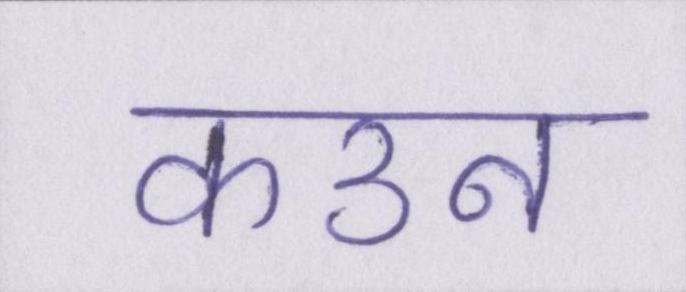 कउन